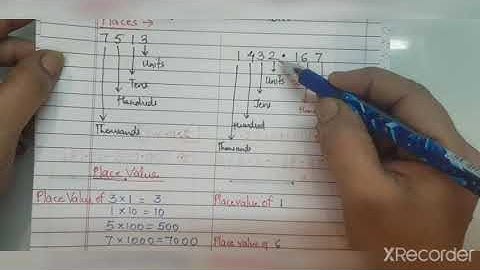 Places →
7 5 1 3
Units
Tens
Hundreds
Thousands
1 4 3 2 . 1 6 7
Units
Tens
Hundred
Thousands
Place Value
Place Value of 3 × 1 = 3
1 × 10 = 10
5 × 100 = 500
7 × 1000 = 7000
Place value of 1
Place value of 6
XRecorder